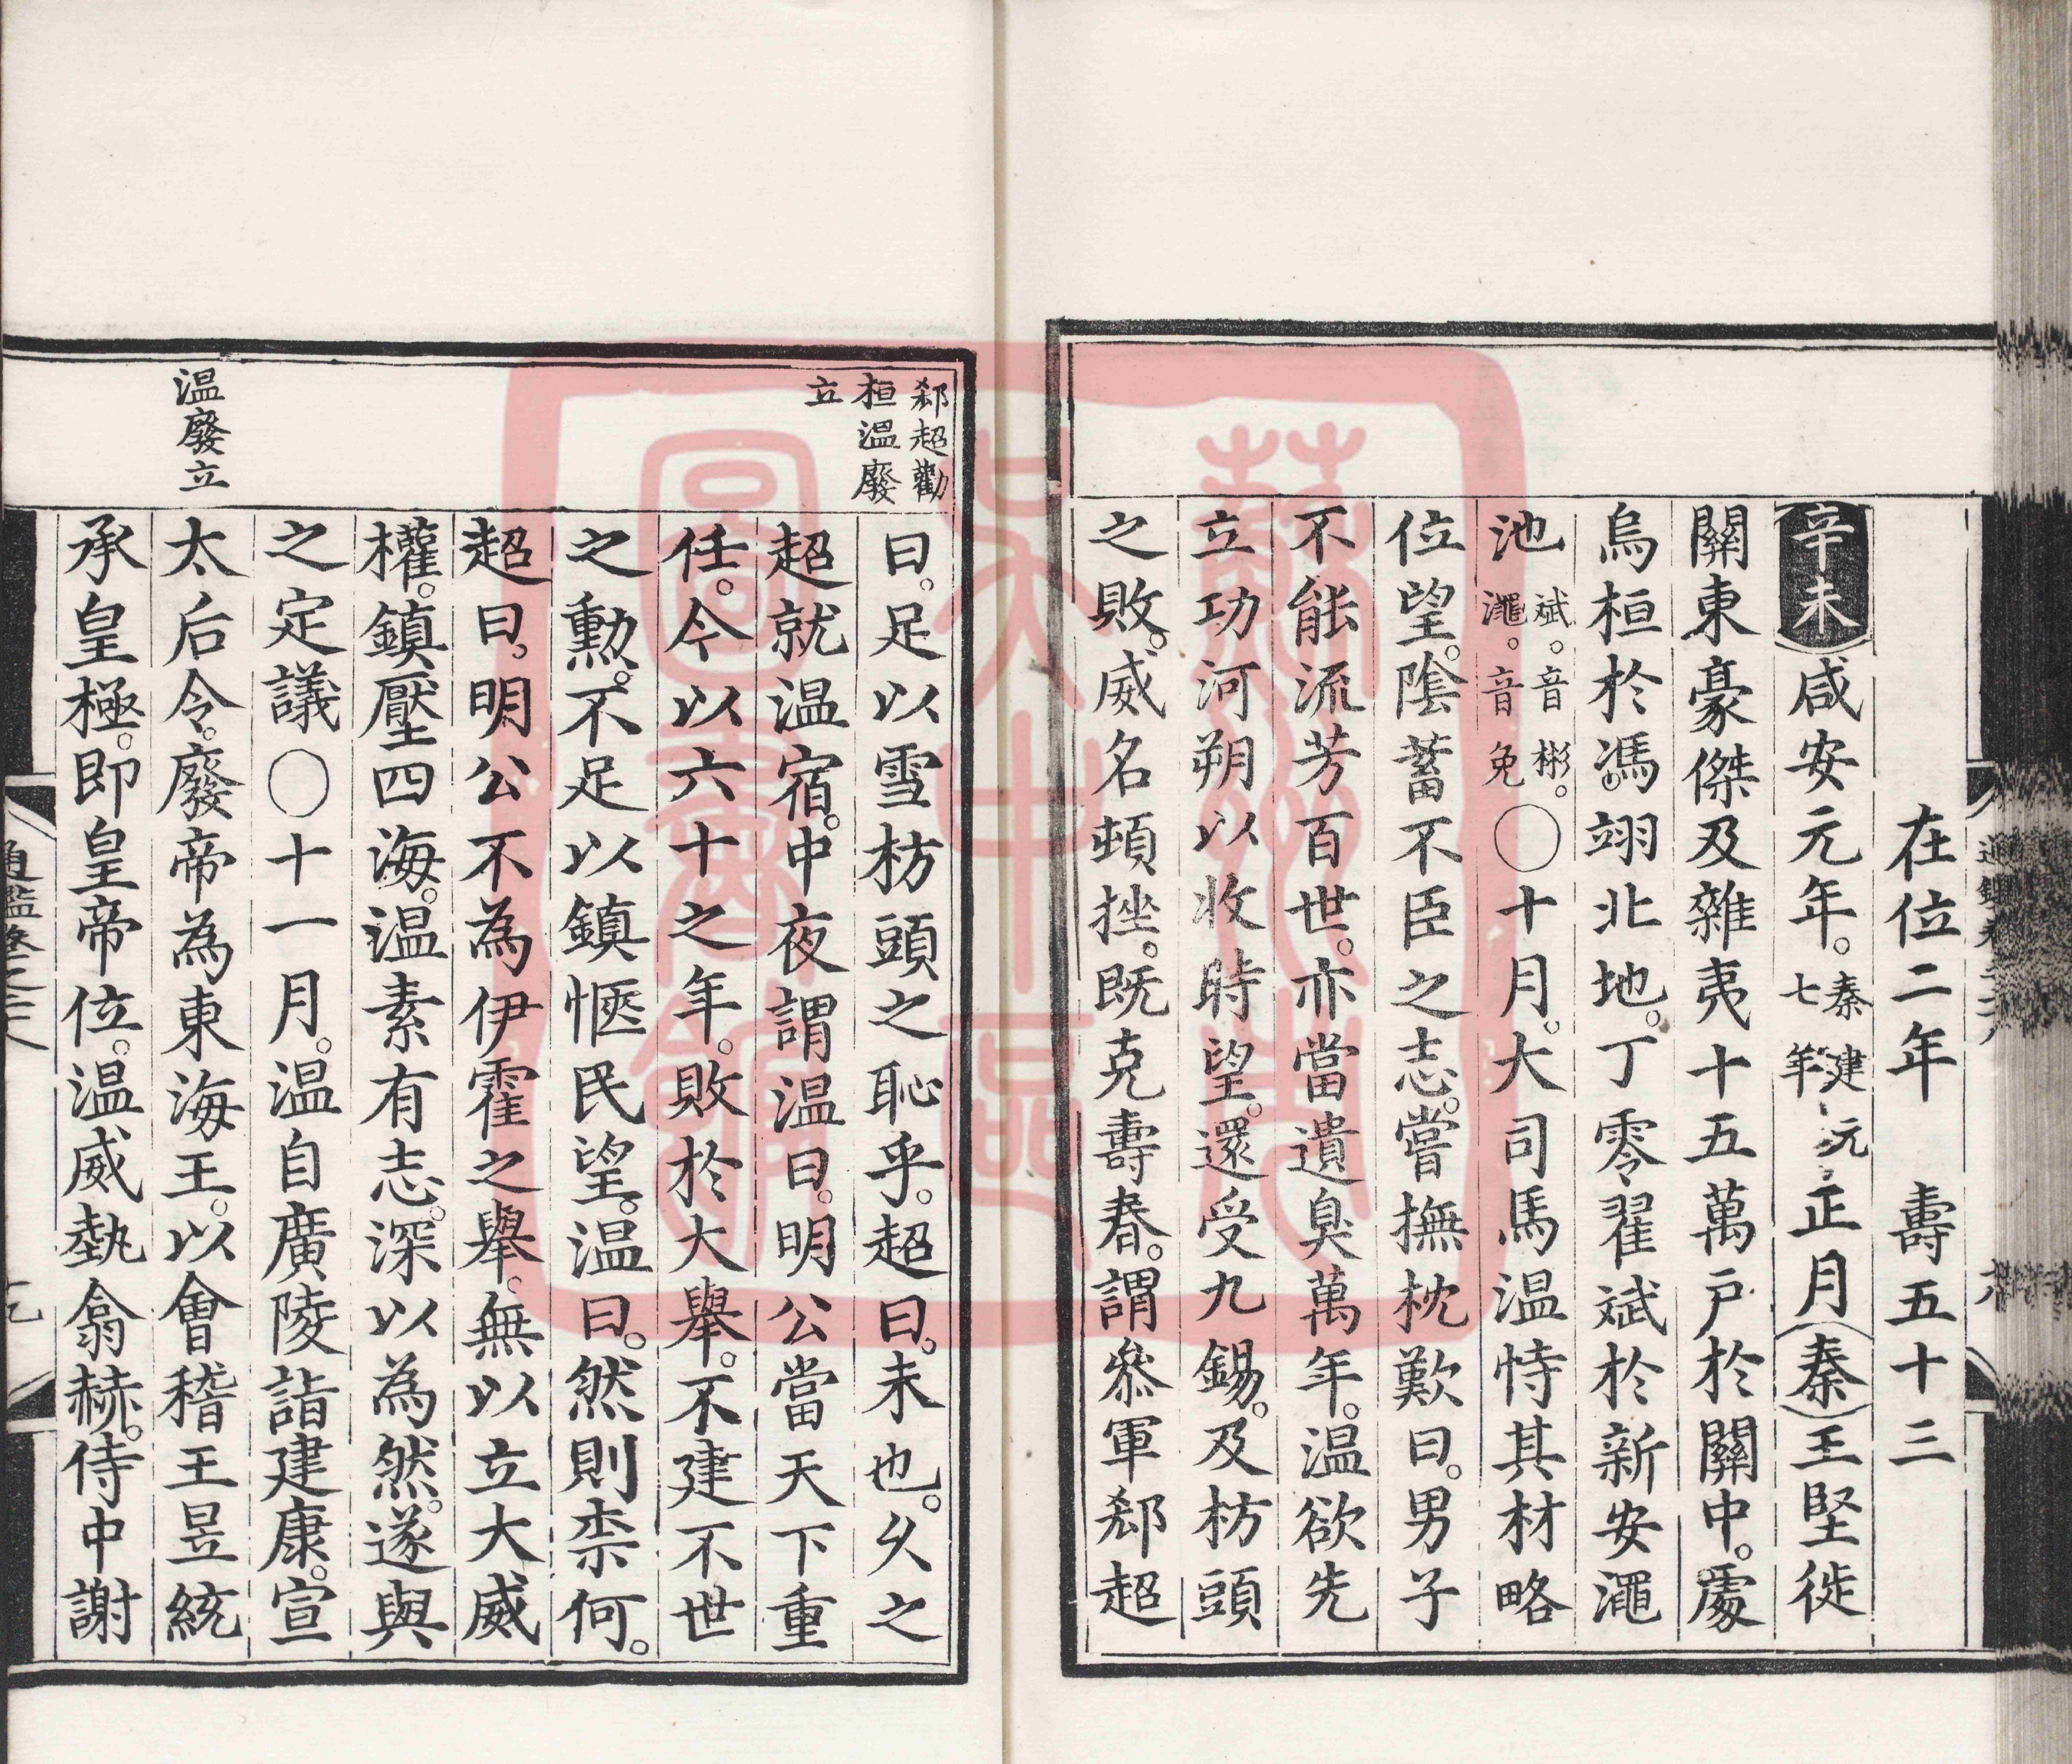 在位二年　壽五十三
辛未咸安元年。秦建元七年正月秦王堅徙
關東豪傑及雜夷十五萬戶於關中。處
烏桓於馮翊北地。丁零翟斌於新安澠
池斌。音彬。澠。音免〇十月。大司馬温恃其材略
位望。陰蓄不臣之志。嘗撫枕歎曰。男子
不能流芳百世。亦當遺臭萬年。温欲先
立功河朔以收時望。還受九錫。及枋頭
之敗。威名頓挫。既克壽春。謂叅軍郄超
郄超勸
桓温廢
立
曰。足以雪枋頭之恥乎。超曰。未也。乆之
超就温宿。中夜謂温曰。明公當天下重
任。今以六十之年。敗於大舉。不建不世
之勳。不足以鎮愜民望。温曰。然則柰何。
超曰。明公不為伊霍之舉。無以立大威
權。鎮壓四海。温素有志。深以為然。遂與
之定議〇十一月。温自廣陵詣建康。宣
温廢立
太后令。廢帝為東海王。以會稽王昱統
承皇極。即皇帝位。温威埶翕赫。侍中謝